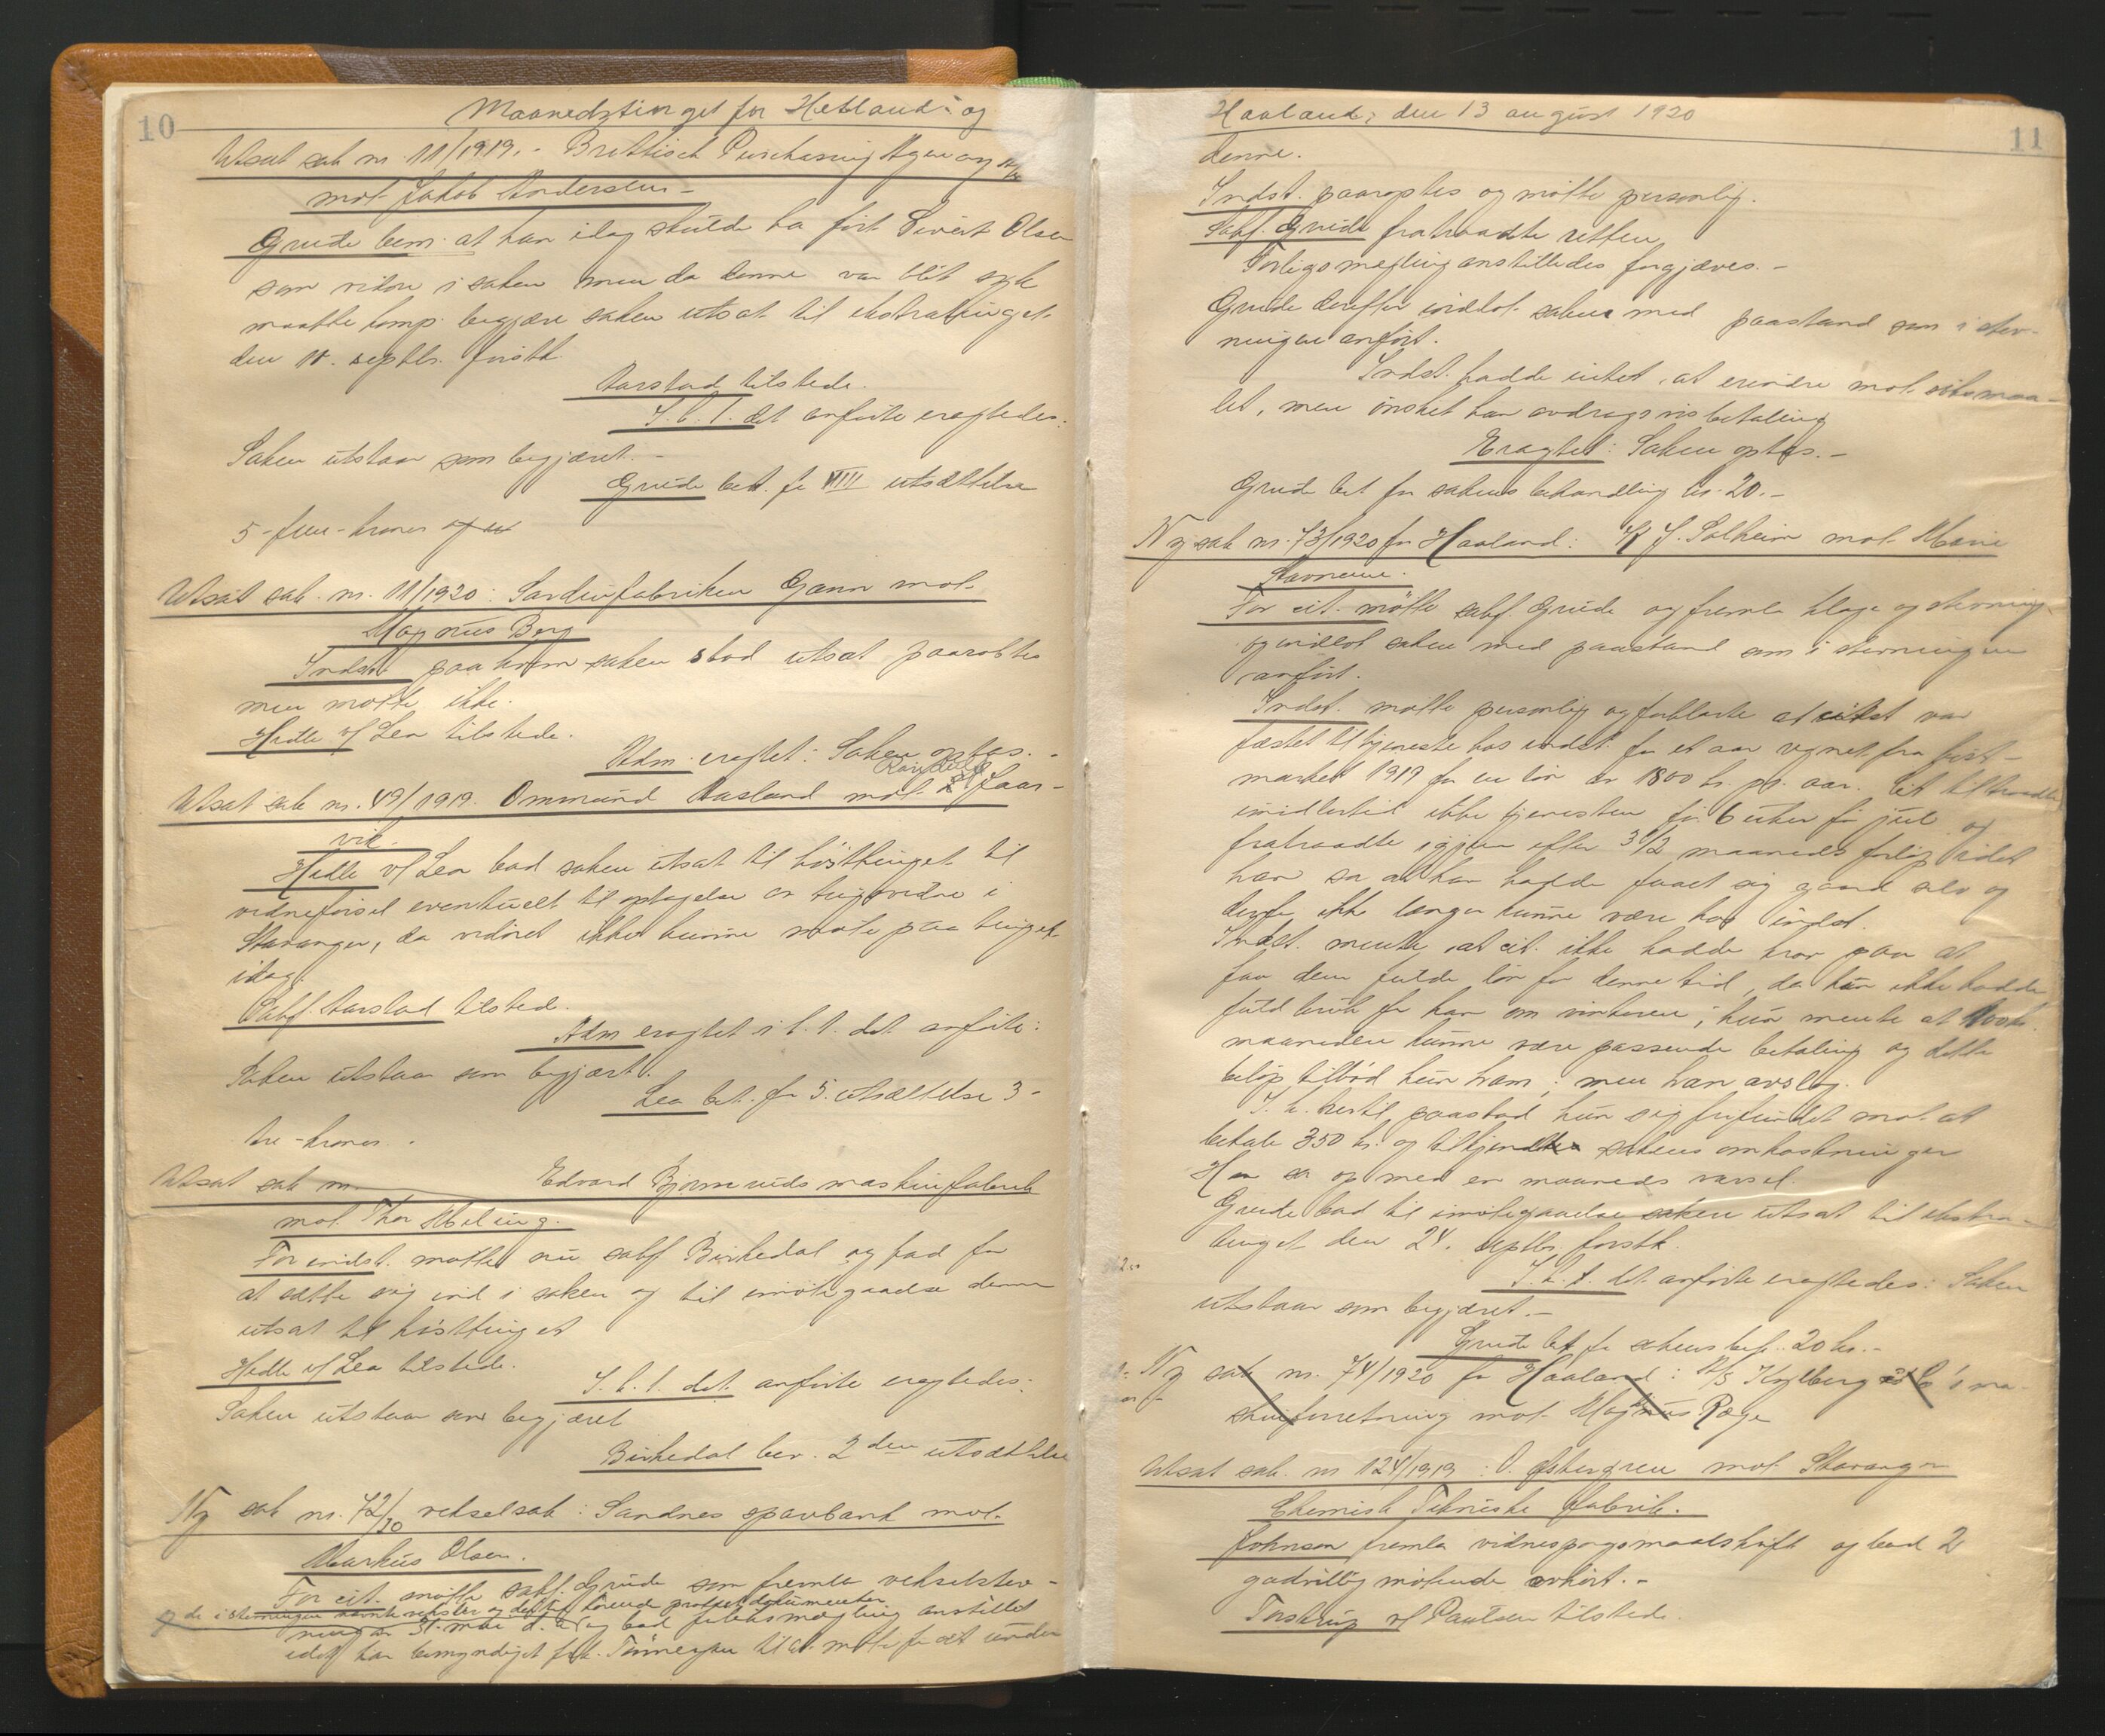 10
Maanedstinget for Hetland og
Utsat sak nr. 11/1919. - Brittisch Purchasing Agency A/S
mot Jakob Anderssen -
Grude bem. at han idag skulde ha ført Sivert Olsen
som vidne i saken men da denne var blit syk
maatte komp. begjære saken utsat til ekstratinget
den 10. septbr. førstk.
Aarstad tilstede.
I. h. t. det anførte eragtedes:
Saken utstaar som begjæret. -
Grude bet. for VIII utsættelse
5 - fem - kroner
Utsat sak. nr. 11/1920: Sardinfabriken Gann mot
Magnus Berg
Indst. paa hvem saken stod utsat paaroptes
men møtte ikke.
Hadle v/ Lea tilstede.
Adm. eragtet: Saken optas. -
Utsat sak nr. 49/1919. Ommund Aasland mot Faar-
vik.
Hadle v/ Lea bad saken utsat til høsttinget til
vidneførsel eventuelt til optagelse av tingsvidne i
Stavanger, da vidnet ikke kunne møte paa tinget
idag.
Sakf. Aarstad tilsted.
Adm eragtet i h. t. det anførte:
Saken utstaar som begjært.
Lea bet. for 5. utsættelse 3 -
tre - kroner. -
Utsat sak nr. Edvard Bjørnruds maskinfabrik
mot Thor Meling.
For indst. møtte nu sakf Birkedal og bad for
at sætte sig ind i saken og til imøtegaaelse denne
utsat til høsttinget
Hadle v/ Lea tilstede.
I. h. t. det anførte eragtedes:
Saken utstaar som begjæret
Birkedal ber. 2den utsættelse
Ny sak nr. 72/20 vekselsak: Sandnes sparebank mot
Markus Olsen.
For cit. møtte sakf. Grude som fremla vekselstev-
og de i stevningen nævnte veksler og dertil hørende protest dokumenter
ning av 31. mai d. a. og bad forliksmægling anstillet
idet han bemyndiget fuldm. Tønnessen til at møte for cit under
11
Haaland, den 13 august 1920
denne.
Indst. paaroptes og møtte personlig.
Sakf. Grude fratraadte retten
Forligsmegling anstilledes forgjæves. -
Grude derefter indlot saken med paastand som i stev-
ningen anført.
Indst. hadde intet at erindre mot søksmaa-
let, men ønsket kun avdragsvis betaling
Eragtet: Saken optas. -
Grude bet for sakens behandling kr. 20. -
Ny sak nr. 73/1920 for Haaland: K J. Solheim mot Marie
Stavneim.
For cit. møtte sakf. Grude og fremla klage og stevning
og indlot saken med paastand som i stevningen
anført.
Indst. møtte personlig og forklarte at citst var
fæstet til tjeneste hos indst. for et aar regnet fra høst-
marked 1919 for en løn av 1800 kr. pr. aar. Cit tiltraadte
imidlertid ikke tjenesten før 6 uker før jul og
fratraadte igjen efter 3 1/2 maaneds forløp idet
han sa at han hadde faaet sig gaard selv og
derfor ikke længer kunne være hos indst.
Indst. mente at cit. ikke hadde krav paa at
faa den fulde løn for denne tid, da hun ikke hadde
fuld bruk for han om vinteren; hun mente at 100 kr.
maaneden kunne være passende betaling og dette
beløp tilbød hun ham; men han avslog.
I. h. hertil paastod hun sig frifundet mot at
betale 350 kr. og tilkjendt sakens omkostninger
Han sa op med en maaneds varsel.
Grude bad til imøtegaaelse saken utsat til ekstra-
tinget den 24. septbr. førstk.
I. h. t. det anførte eragtedes: Saken
utstaar som begjæret. -
Grude bet for sakens beh. 20 kr. -
Ny sak nr. 74/1920 for Haaland: A/S Koglberg & Co's ma-
skinforretning mot Magnus Ræge
Utsat sak. nr 124/1919: O. Østergren mot Stavanger
Chemisk Tekniske fabrik.
Johnsen fremla vidnespørgsmaalskrift og bad 2
godvillig møtende avhørt. -
Torstrup v/ Paulsen tilstede.